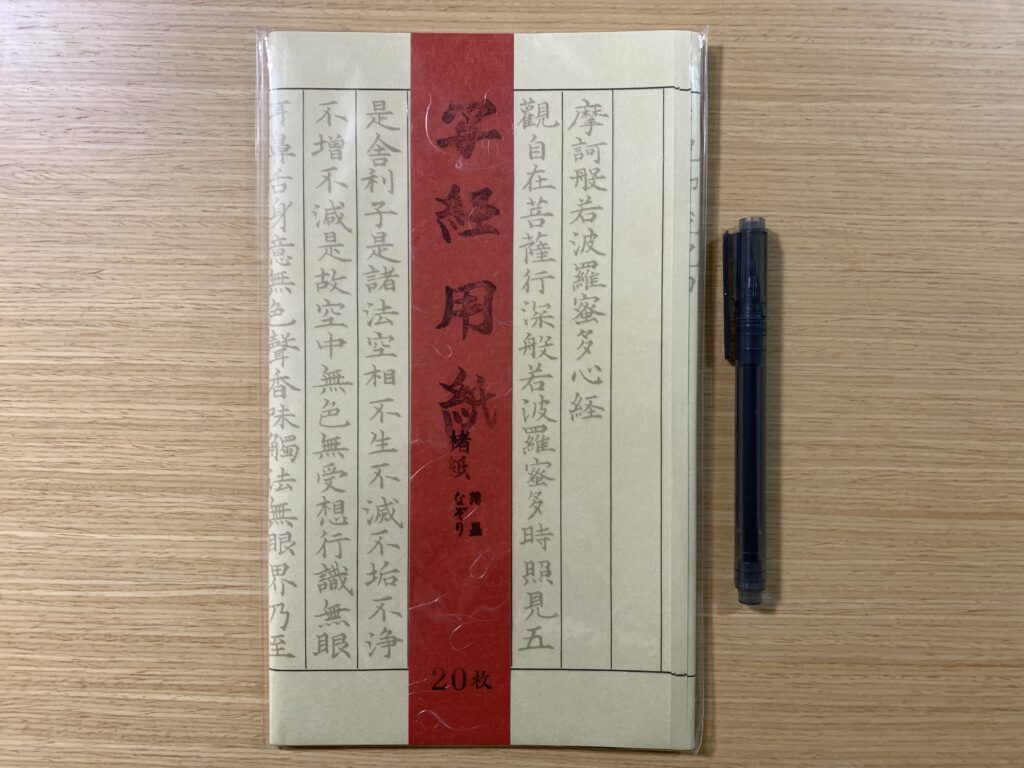 摩訶般若波羅蜜多心経
觀自在菩薩行深般若波羅蜜多時照見五
写経用紙
楮紙
薄墨
なぞり
20枚
是舎利子是諸法空相不生不滅不垢不浄
不増不減是故空中無色無受想行識無眼
耳鼻舌身意無色聲香味觸法無眼界乃至